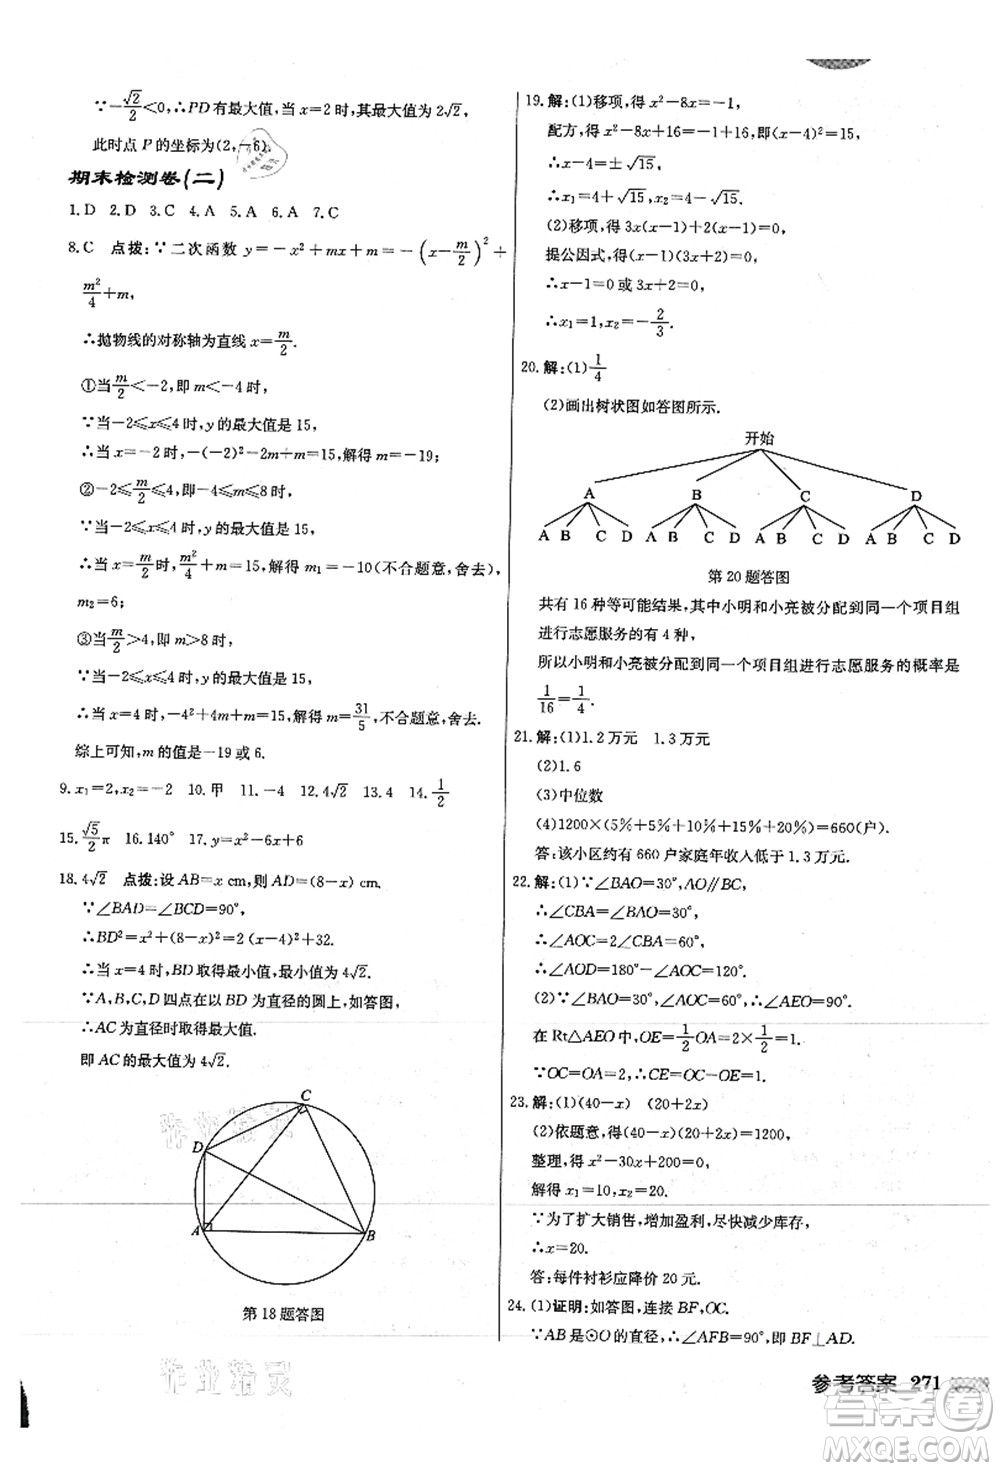 ∵-√2/2<0,∴PD有最大值,当x=2时,其最大值为2√2,
此时点P的坐标为(2,-6).
期末检测卷(二)
1.D 2.D 3.C 4.A 5.A 6.A 7.C
8.C 点拨:∵二次函数y=-x²+mx+m=-(x-m/2)²+
m²/4+m,
∴抛物线的对称轴为直线x=m/2.
①当m/2<-2,即m<-4时,
∵当-2≤x≤4时,y的最大值是15,
∴当x=-2时,-(-2)²-2m+m=15,得m=-19;
②-2≤m/2≤4,即-4≤m≤8时,
∵当-2≤x≤4时,y的最大值是15,
∴当x=m/2时,m²/4+m=15,解得m₁=-10(不合题意,舍去),
m₂=6;
③当m/2>4,即m>8时,
∵当-2≤x≤4时,y的最大值是15,
∴当x=4时,-4²+4m+m=15,解得m=31/5,不合题意,舍去.
综上可知,m的值是-19或6.
9.x₁=2,x₂=-2 10.甲 11.-4 12.4√2 13.4 14.1/2
15.√5/2π 16.140° 17.y=x²-6x+6
18.4√2 点拨:设AB=x cm,则AD=(8-x) cm.
∵∠BAD=∠BCD=90°,
∴BD²=x²+(8-x)²=2(x-4)²+32.
∴当x=4时,BD取得最小值,最小值为4√2.
∵A,B,C,D四点在以BD为直径的圆上,如答图,
∴AC为直径时取得最大值.
即AC的最大值为4√2.
C
D
A
B
第18题答图
19.解:(1)移项,得x²-8x=-1,
配方,得x²-8x+16=-1+16,即(x-4)²=15,
∴x-4=±√15,
∴x₁=4+√15,x₂=4-√15.
(2)移项,得3x(x-1)+2(x-1)=0,
提公因式,得(x-1)(3x+2)=0,
∴x-1=0或3x+2=0,
∴x₁=1,x₂=-2/3.
20.解:(1)1/4
(2)画出树状图如答图所示.
开始
A B C D
A B C D A B C D A B C D A B C D
第20题答图
共有16种等可能结果,其中小明和小亮被分配到同一个项目组
进行志愿服务的有4种,
所以小明和小亮被分配到同一个项目组进行志愿服务的概率是
1/16=1/4.
21.解:(1)1.2万元 1.3万元
(2)1.6
(3)中位数
(4)1200×(5%+5%+10%+15%+20%)=660(户).
答:该小区约有660户家庭年收入低于1.3万元.
22.解:(1)∵∠BAO=30°,AO∥BC,
∴∠CBA=∠BAO=30°,
∴∠AOC=2∠CBA=60°,
∴∠AOD=180°-∠AOC=120°.
(2)∵∠BAO=30°,∠AOC=60°,∴∠AEO=90°.
在Rt△AEO中,OE=1/2OA=2×1/2=1.
∵OC=OA=2,∴CE=OC-OE=1.
23.解:(1)(40-x) (20+2x)
(2)依题意,得(40-x)(20+2x)=1200,
整理,得x²-30x+200=0,
解得x₁=10,x₂=20.
∵为了扩大销售,增加盈利,尽快减少库存,
∴x=20.
答:每件衬衫应降价20元.
24.(1)证明:如答图,连接BF,OC.
∵AB是⊙O的直径,∴∠AFB=90°,即BF⊥AD.
作业精灵
参考答案 271
答案圈
MXQE.COM